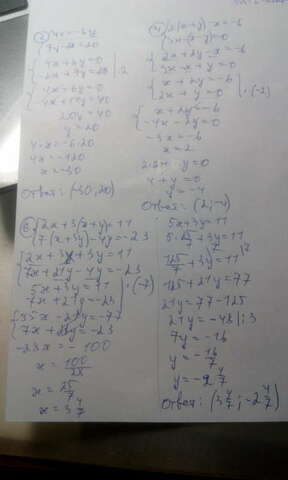 ② {4x=-6y
7y-2x=20
{4x+6y=0
-2x+7y=20 |·2
{4x-6y=0
-4x+14y=40
20y=40
y=20
4·x=-6·20
4x=-120
x=-30
Ответ: (-30; 20)
④ {2(x+y)-x=-6
3x-(x-y)=0
{2x+2y-x=-6
3x-x+y=0
{x+2y=-6
2x+y=0 |·(-2)
{x+2y=-6
-4x-2y=0
-3x=-6
x=2
2·2+y=0
4+y=0
y=-4
Ответ: (2; -4)
⑥ {2x+3(x+y)=11
7(x+3y)-4y=-23
{2x+3x+3y=11
7x+21y-4y=-23
5x+3y=11 |·(-7)
7x+21y=-23
{-35x-21y=-77
7x+21y=-23
-28x=-100
x=100/28
x=25/7
x=3 4/7
5x+3y=11
5·25/7+3y=11
125/7+3y=11 |·7
125+21y=77
21y=77-125
21y=-48 |:3
7y=-16
y=-16/7
y=-2 4/7
Ответ: (3 4/7; -2 4/7)